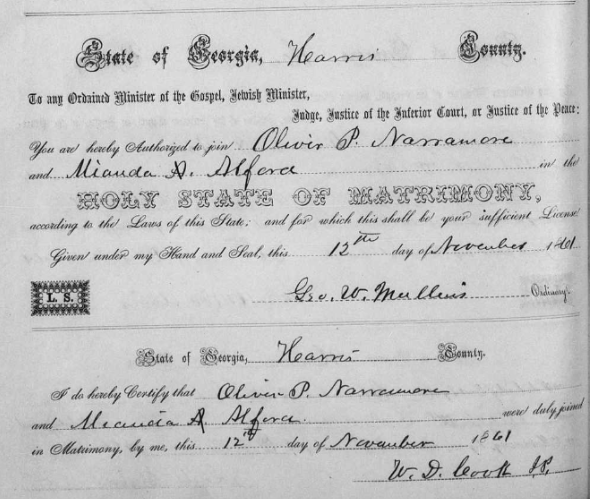 State of Georgia, Harris County.
To any Ordained Minister of the Gospel, Jewish Minister,
Judge, Justice of the Inferior Court, or Justice of the Peace:
You are hereby Authorized to join Oliver P. Narramore
and Mianda A. Alford in the
HOLY STATE OF MATRIMONY,
according to the Laws of this State; and for which this shall be your sufficient License
Given under my Hand and Seal, this 12th day of November 1861
L. S. Geo. W. Mullins Ordinary.
State of Georgia, Harris County.
I do hereby Certify that Oliver P. Narramore
and Mianda A Alford were duly joined
in Matrimony, by me, this 12th day of November 1861
W. D. Cook J.P.